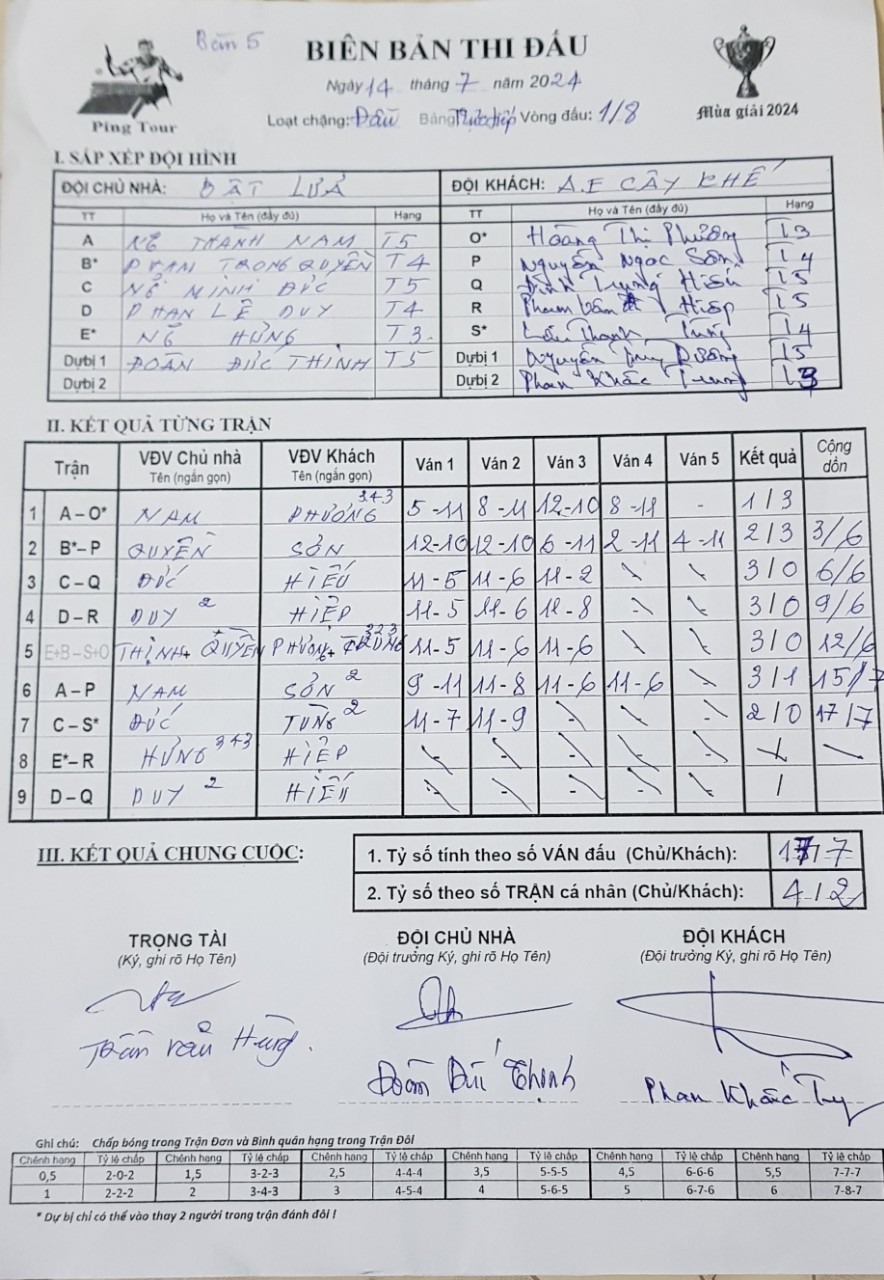 Bàn 5
BIÊN BẢN THI ĐẤU
Ngày 14 tháng 7 năm 2024
Ping Tour
Loạt chặng: Đấu Bảng Trực tiếp Vòng đấu: 1/8
Mùa giải 2024
I. SẮP XẾP ĐỘI HÌNH
ĐỘI CHỦ NHÀ: ĐẤT LỬA ĐỘI KHÁCH: A.E CÂY KHẾ
TT Họ và Tên (đầy đủ) Hạng TT Họ và Tên (đầy đủ) Hạng
A NG THÀNH NAM T5 O* Hoàng Thị Phương T3
B* PHẠM TRỌNG QUYỀN T4 P Nguyễn Ngọc Sơn T4
C NG MINH ĐỨC T5 Q Đinh Trung Hiếu T5
D PHAN LÊ DUY T4 R Phạm Văn Hiệp T5
E* NG HƯNG T3 S* Thanh Tùng T4
Dự bị 1 ĐOÀN ĐỨC THỊNH T5 Dự bị 1 Nguyễn Duy Dương T5
Dự bị 2 Dự bị 2 Phan Khắc Trung T3
II. KẾT QUẢ TỪNG TRẬN
Trận VĐV Chủ nhà Tên (ngắn gọn) VĐV Khách Tên (ngắn gọn) Ván 1 Ván 2 Ván 3 Ván 4 Ván 5 Kết quả Cộng dồn
1 A – O* NAM PHƯƠNG 343 5-11 8-11 12-10 8-11 - 1/3
2 B* – P QUYỀN SƠN 12-10 12-10 6-11 2-11 4-11 2/3 3/6
3 C – Q ĐỨC HIẾU 11-5 11-6 11-2 3/0 6/6
4 D – R DUY 2 HIỆP 11-5 11-6 11-8 - - 3/0 9/6
5 E+B – S+O THỊNH + QUYỀN PHƯƠNG + 323 11-5 11-6 11-6 3/0 12/6
6 A – P NAM SƠN 2 9-11 11-8 11-6 11-6 3/1 15/7
7 C – S* ĐỨC TÙNG 2 11-7 11-9 - - - 2/0 17/7
8 E* – R HƯNG 343 HIỆP - - - - - /
9 D – Q DUY 2 HIẾU - - - - - /
III. KẾT QUẢ CHUNG CUỘC:
1. Tỷ số tính theo số VÁN đấu (Chủ/Khách): 17/7
2. Tỷ số theo số TRẬN cá nhân (Chủ/Khách): 4/2
TRỌNG TÀI ĐỘI CHỦ NHÀ ĐỘI KHÁCH
(Ký, ghi rõ Họ Tên) (Đội trưởng Ký, ghi rõ Họ Tên) (Đội trưởng Ký, ghi rõ Họ Tên)
Trần Văn Hùng. Đoàn Đức Thịnh Phan Khắc
Ghi chú: Chấp bóng trong Trận Đơn và Bình quân hạng trong Trận Đôi
Chênh hạng Tỷ lệ chấp Chênh hạng Tỷ lệ chấp Chênh hạng Tỷ lệ chấp Chênh hạng Tỷ lệ chấp Chênh hạng Tỷ lệ chấp Chênh hạng Tỷ lệ chấp
0,5 2-0-2 1,5 3-2-3 2,5 4-4-4 3,5 5-5-5 4,5 6-6-6 5,5 7-7-7
1 2-2-2 2 3-4-3 3 4-5-4 4 5-6-5 5 6-7-6 6 7-8-7
* Dự bị chỉ có thể vào thay 2 người trong trận đánh đôi !